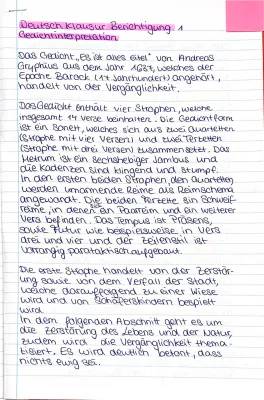 Deutsch Klausur Berichtigung 1
Gedichtinterpretation
Das Gedicht „Es ist alles eitel" von Andreas
Gryphius aus dem Jahr 1637, welches der
Epoche Barock (17 Jahrhundert) angehört,
handelt von der Vergänglichkeit.
Das Gedicht enthält vier Strophen, welche
insgesamt 14 Verse beinhalten. Die Gedichtform
ist ein Sonett, welches sich aus zwei Quartetten
(Strophe mit vier Versen) und zwei Terzetten
(Strophe mit drei Versen) zusammen setzt. Das
Metrum ist ein sechshebiger Jambus und
die Kadenzen sind klingend und stumpf.
In den ersten beiden Strophen, den Quartetten,
werden umarmende Reime als Reimschema
angewandt. Die beiden Terzette sin Schweif-
reime, in denen ein Paarreim und ein weiterer
Vers befinden. Das Tempus ist Präsens,
sowie Futur wie beispielsweise in Vers
drei und vier und der Zeilenstil ist
vorrangig parataktisch aufgebaut.
Die erste Strophe handelt von der Zerstör-
ung sowie von dem Verfall der Stadt,
welche darauffolgend zu einer Wiese
wird und von Schäferskindern bespielt
wird.
In dem folgenden Abschnitt geht es um
die Zerstörung des Lebens und der Natur,
zudem wird die Vergänglichkeit thema-
tisiert. Es wird deutlich betont, dass
nichts ewig sei.